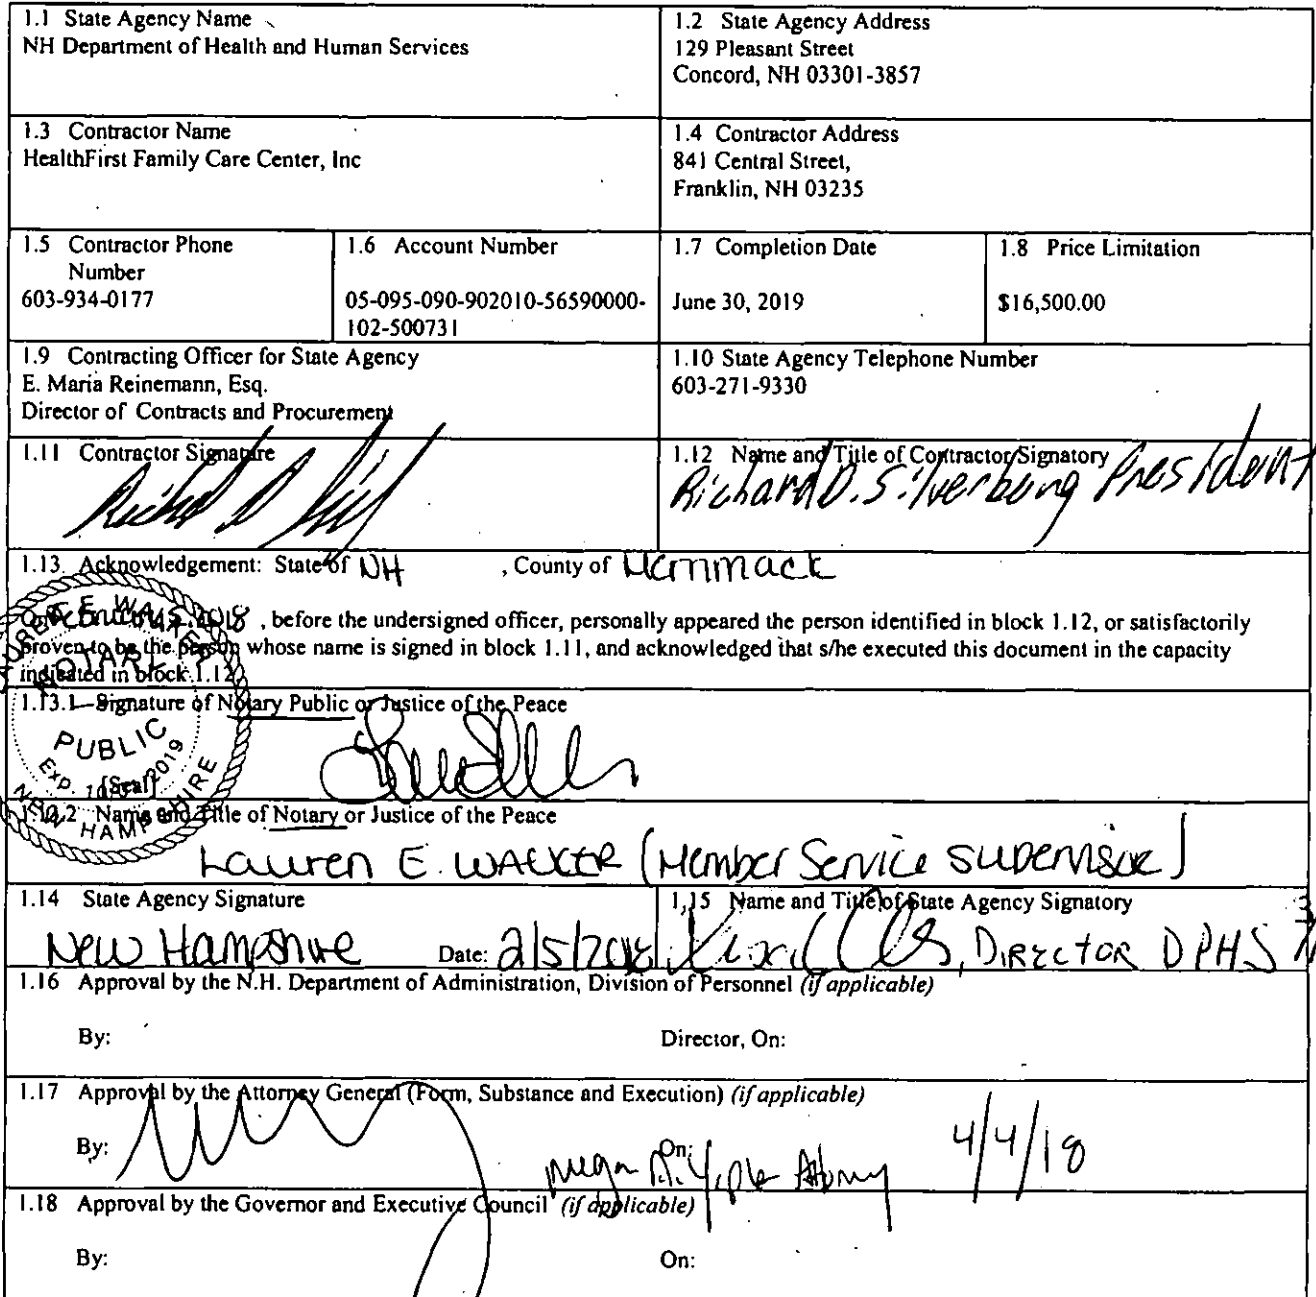 1.1 State Agency Name
NH Department of Health and Human Services
1.2 State Agency Address
129 Pleasant Street
Concord, NH 03301-3857
1.3 Contractor Name
HealthFirst Family Care Center, Inc
1.4 Contractor Address
841 Central Street,
Franklin, NH 03235
1.5 Contractor Phone
Number
603-934-0177
1.6 Account Number
05-095-090-902010-56590000-
102-500731
1.7 Completion Date
June 30, 2019
1.8 Price Limitation
$16,500.00
1.9 Contracting Officer for State Agency
E. Maria Reinemann, Esq.
Director of Contracts and Procurement
1.10 State Agency Telephone Number
603-271-9330
1.11 Contractor Signature
1.12 Name and Title of Contractor Signatory
Richard D. Silverberg President
1.13. Acknowledgement: State of NH , County of Merrimack
2018 , before the undersigned officer, personally appeared the person identified in block 1.12, or satisfactorily
proven to be the person whose name is signed in block 1.11, and acknowledged that s/he executed this document in the capacity
indicated in block 1.12
1.13.1 Signature of Notary Public or Justice of the Peace
NOTARY
PUBLIC
[Seal]
NEW HAMPSHIRE
Name and Title of Notary or Justice of the Peace
Lauren E. WALKER (Member Service Supervisor)
1.14 State Agency Signature
New Hampshire Date: 2/5/2018
1.15 Name and Title of State Agency Signatory
, DIRECTOR DPHS
1.16 Approval by the N.H. Department of Administration, Division of Personnel (if applicable)
By: Director, On:
1.17 Approval by the Attorney General (Form, Substance and Execution) (if applicable)
By: On: 4/4/18
1.18 Approval by the Governor and Executive Council (if applicable)
By: On: